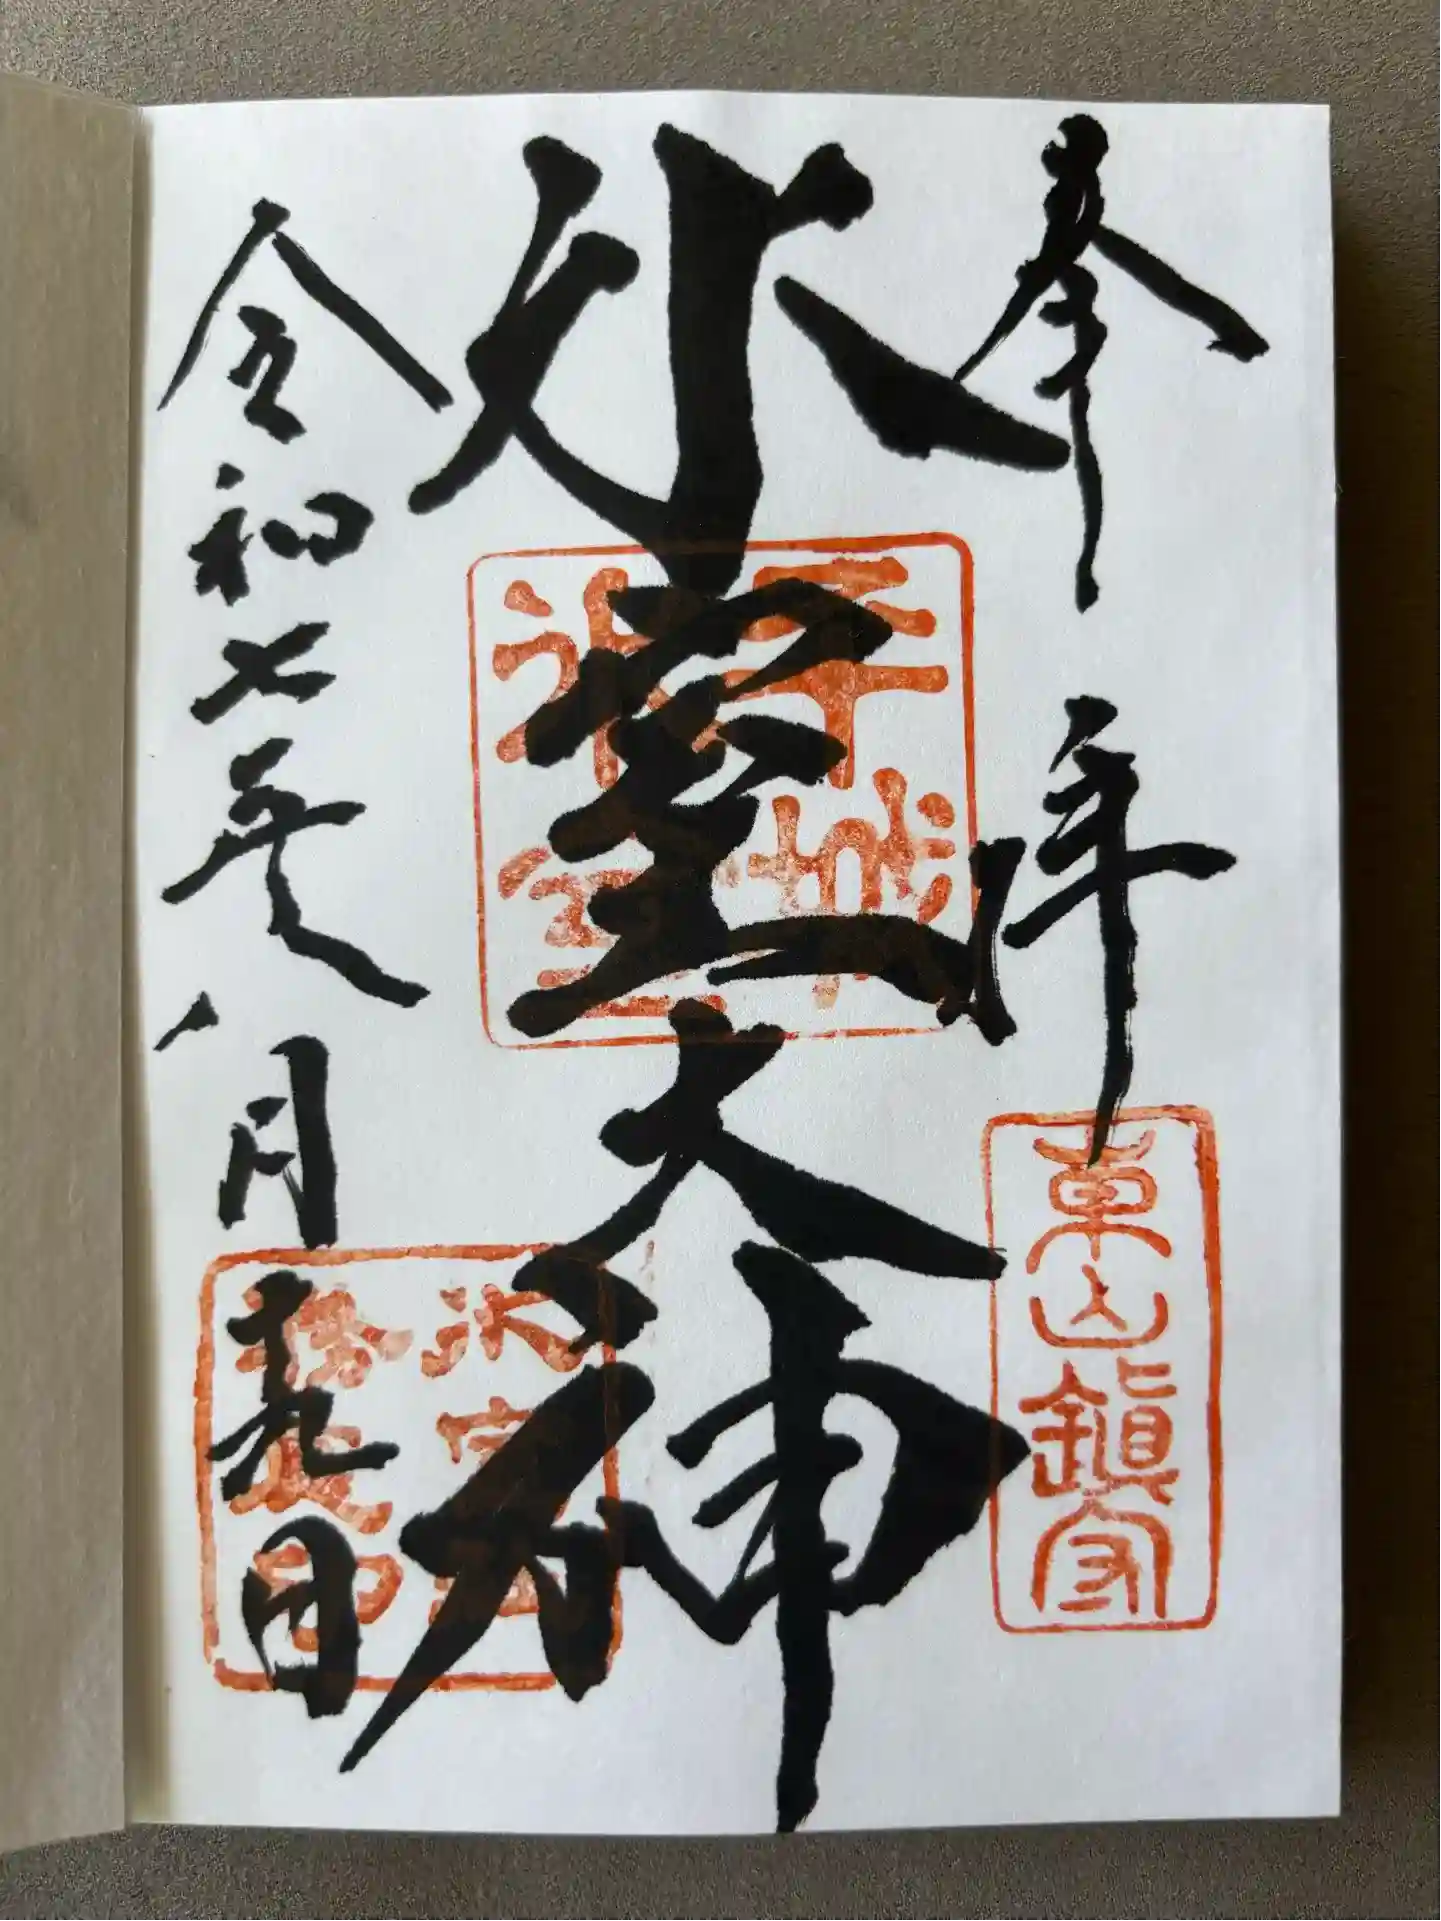 奉拝
東山鎮守
氷室大神
平城
氷室
令和七年八月十九日
氷室